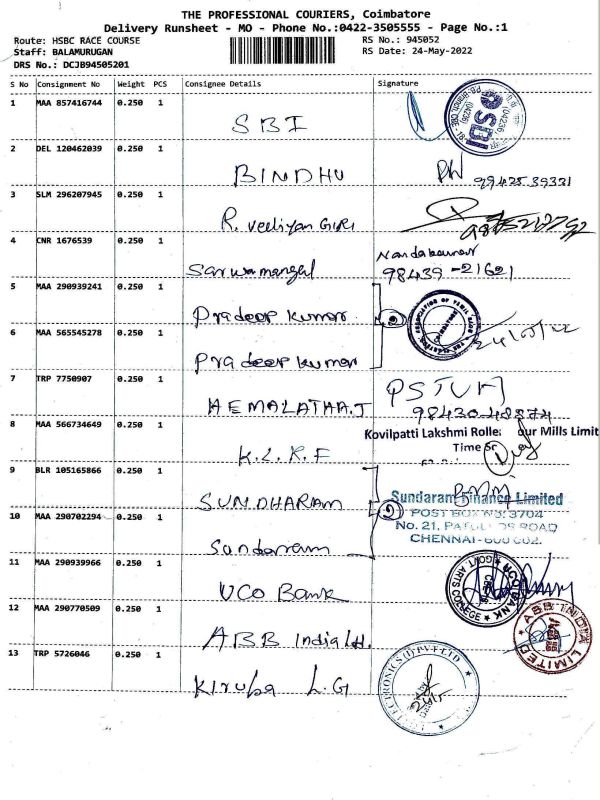 THE PROFESSIONAL COURIERS, Coimbatore
Delivery Runsheet - MO - Phone No.:0422-3505555 - Page No.:1
Route: HSBC RACE COURSE
RS No.: 945052
Staff: BALAMURUGAN
RS Date: 24-May-2022
DRS No.: DCJB94505201
S No Consignment No Weight PCS Consignee Details Signature
1 MAA 857416744 0.250 1
SBI
SBI
2 DEL 120462039 0.250 1
BINDHU
99425 39331
3 SLM 296207945 0.250 1
R. Velliyan GIRI
4 CNR 1676539 0.250 1
Nandakumar
Sarwamangal 98439-21621
5 MAA 290939241 0.250 1
Pradeep kumar
6 MAA 565545278 0.250 1
Pradeep kumar
7 TRP 7750907 0.250 1
HEMALATHA.J
8 MAA 566734649 0.250 1
Kovilpatti Lakshmi Roller our Mills Limit
K.L.R.F
9 BLR 105165866 0.250 1
SUNDHARAM
Sundaram Finance Limited
POST BOX NO: 3704
10 MAA 290702294 0.250 1
No. 21, ROAD
CHENNAI-600 002.
Sundarram
11 MAA 290939966 0.250 1
UCO Bank
GOVT ARTS COLLEGE
UCO BANK
12 MAA 290770509 0.250 1
ABB India Ltd.
ABB INDIA LIMITED
13 TRP 5726046 0.250 1
Kiruba L.G